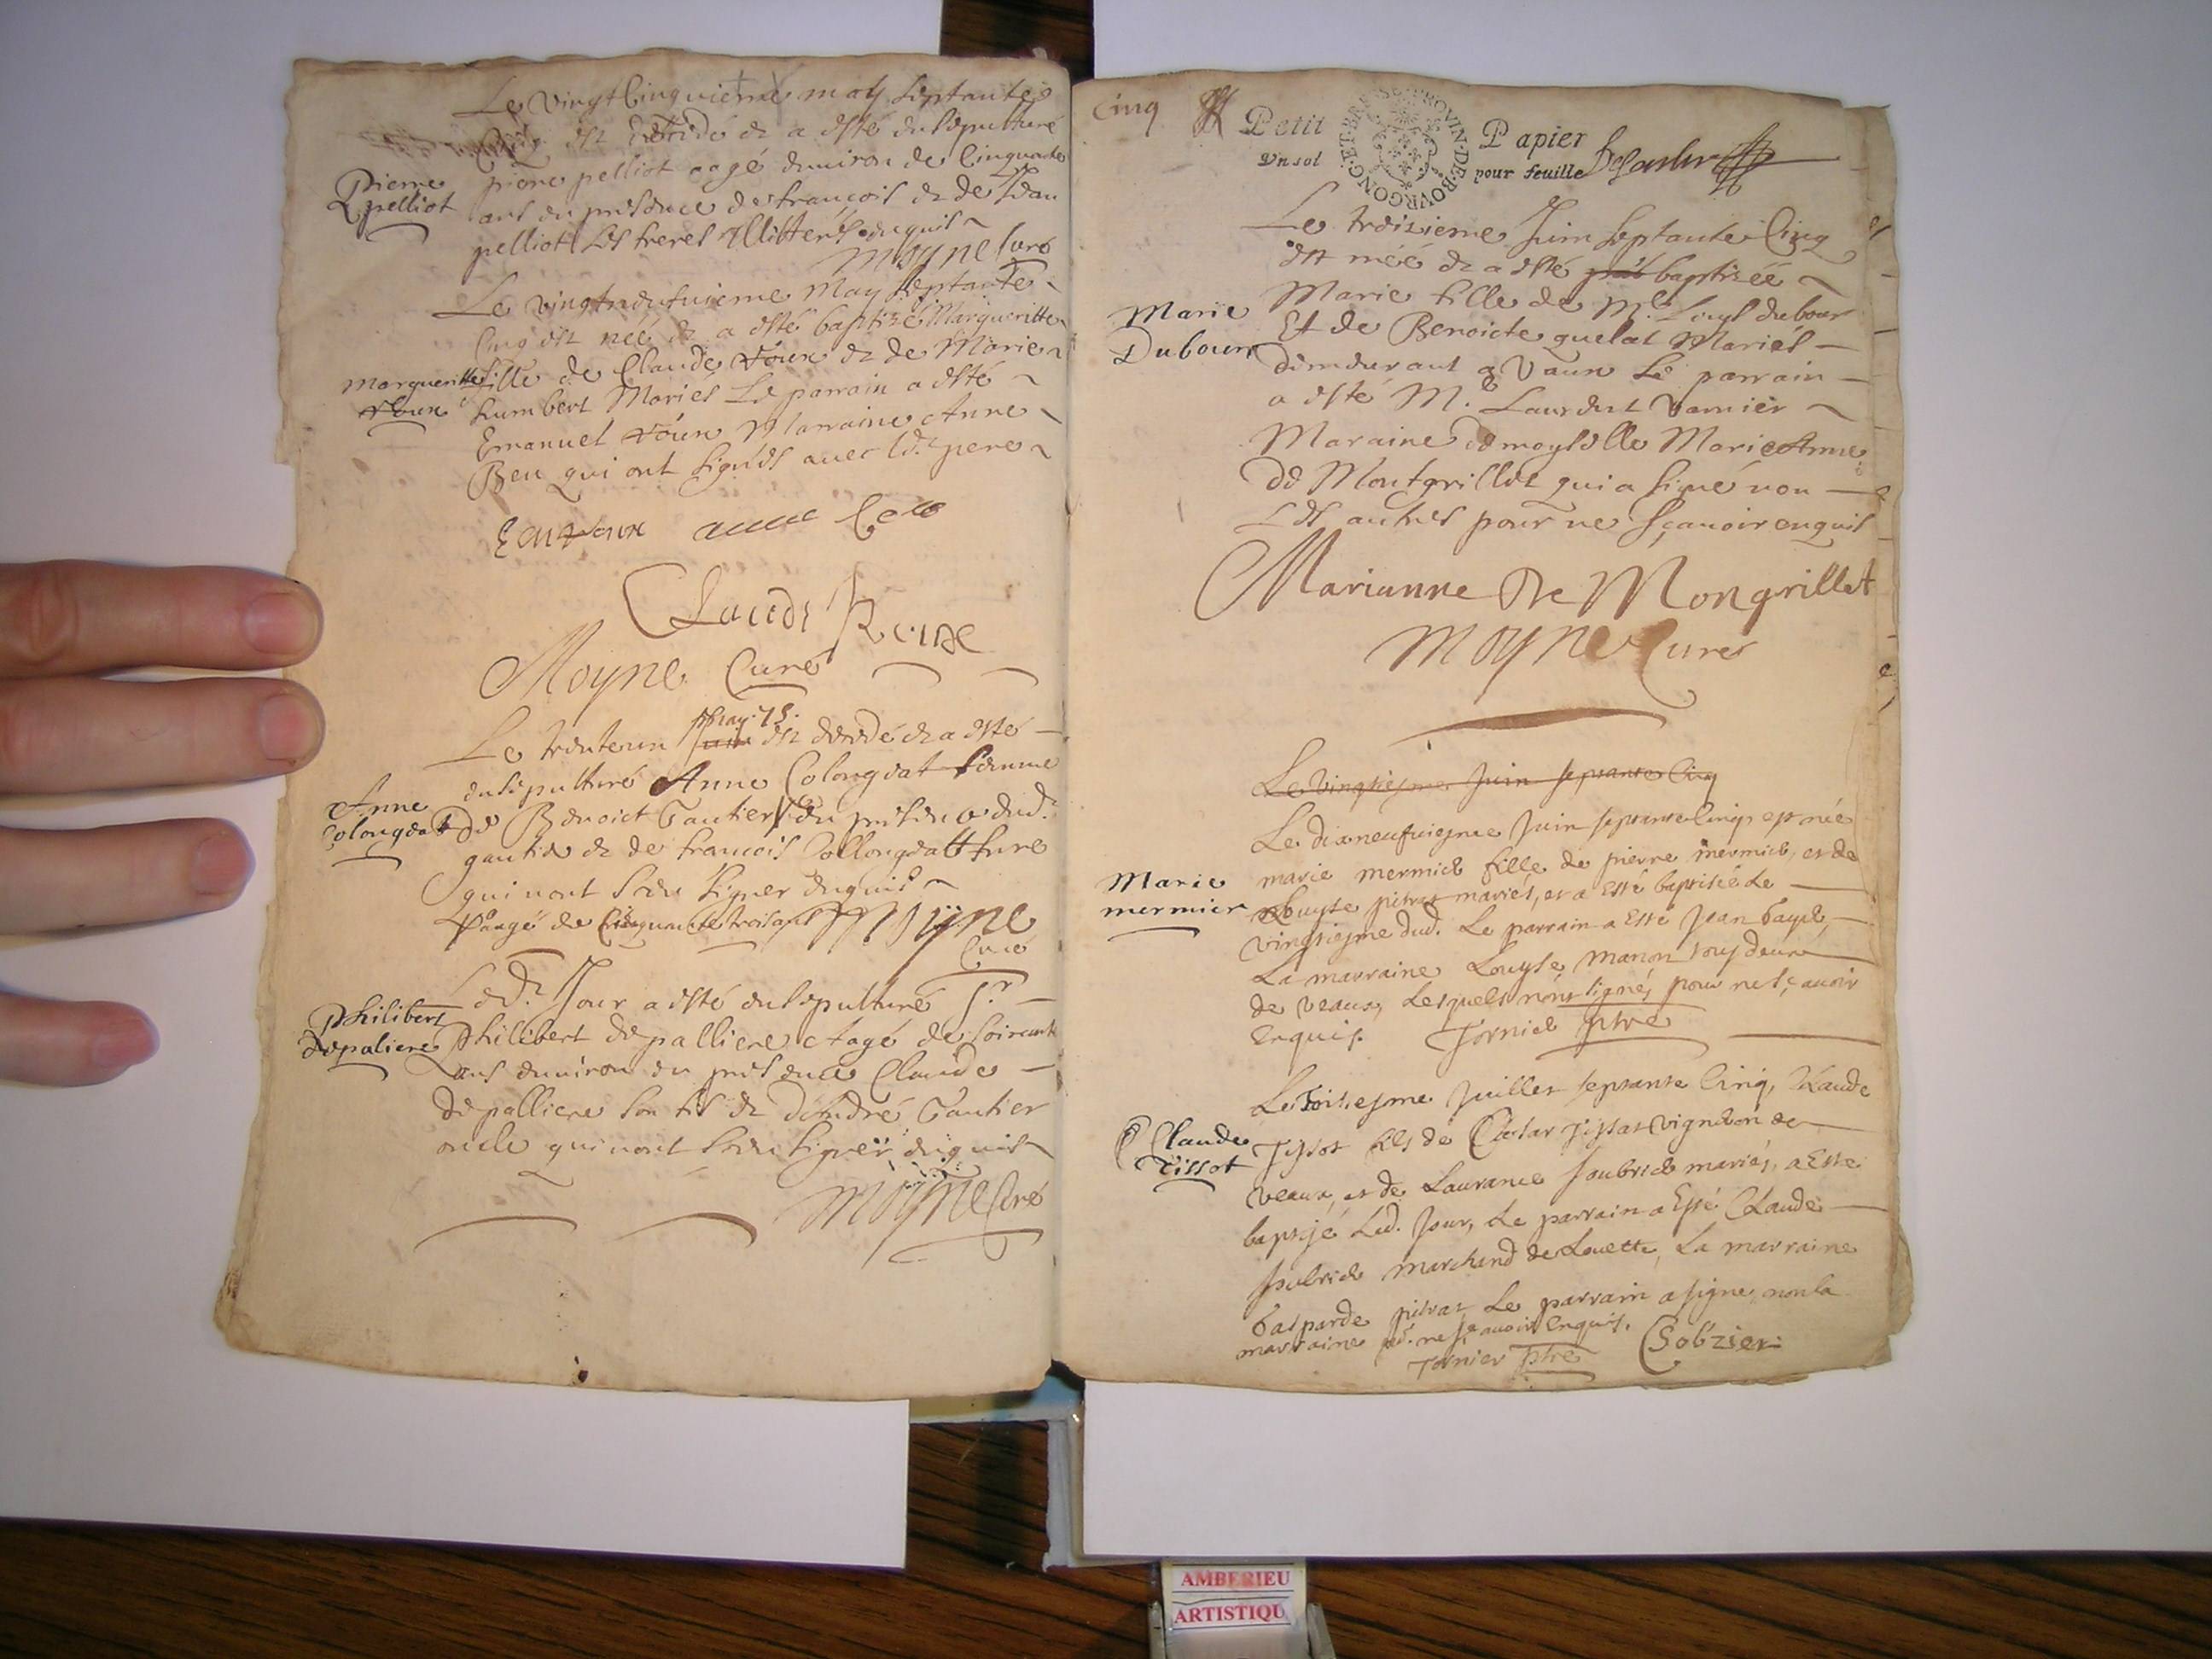 Le vingtcinquieme may septante
cinq est decedé et a esté ensepulturé
Pierre pelliot
piere pelliot aagé denviron de cinquante
ans en presence de françois et de Jean
pelliot ses freres illitterés enquis
Moyne Curé
Le vingtneufuieme May septante
cinq est neé et a esté baptizé Margueritte
Margueritte Roux
fille de Claude Roux et de Marie
humbert Mariés Le parrain a esté
Emanuel Roux Marraine Anne
Beu qui ont signés avec led. pere
Claude Roux
Moyne Curé
may 75.
Le trenteun Juin est decedé et a esté
ensepulturé Anne Colongeat femme
Anne Colongeat
de Benoict Gautier en presence dud.
gautier et de françois Collongeatt frere
qui nont sceu signer enquis
aagé de Cinquante trois ans Moyne
Curé
Led. Jour a esté ensepulturé Sr.
Philibert depaliere
Philibert depalliere Aagé de soixante
ans denviron en presence Claude
depalliere son fils et dAndré Gautier
oncle qui nont sceu signer enquis
Moyne Curé
Cinq
Petit Papier
Un sol pour feuille
PROVIN·DE·BOVRGONG·ET·BRESSE
Le troisieme Juin septante Cinq
est néé et a esté baptizéé
Marie Dubour
Marie fille de Me. Louys dubour
Et de Benoicte quelat Mariés
demeurant a Vaux Le parrain
a esté Me. Laurent Varnier
Maraine demoyselle Marie Anne
de Montgrillet qui a signé non
Les autres pour ne sçavoir enquis
Marianne De Mongrillet
Moyne Curé
Le vingtiesme Juin septante Cinq
Le dixneufuiesme Juin septante cinq est née
Marie mermier
marie mermier fille de pierre mermier, et de
Louyse pitrat mariés, et a Esté baptisée le
vingtiesme dud. Le parrain a Esté Jean Gayet,
La marraine Louyse Manon tous deux
de veaux, Lesquels nont signés pour ne sçavoir
Enquis. Tornier ptre
Le Troisiesme Juillet septante Cinq, Claude
Claude Tissot
Tissot fils de Caesar Tissot vigneron de
veaux, et de Laurance Joubrier mariés, a Esté
baptisé Led. Jour, Le parrain a Esté Claude
marchand de Louette, La marraine
Gasparde pitrat Le parrain a signé non la
marraine pr. ne sçavoir Enquis.
Tornier ptre CSobzier
AMBERIEU
ARTISTIQU